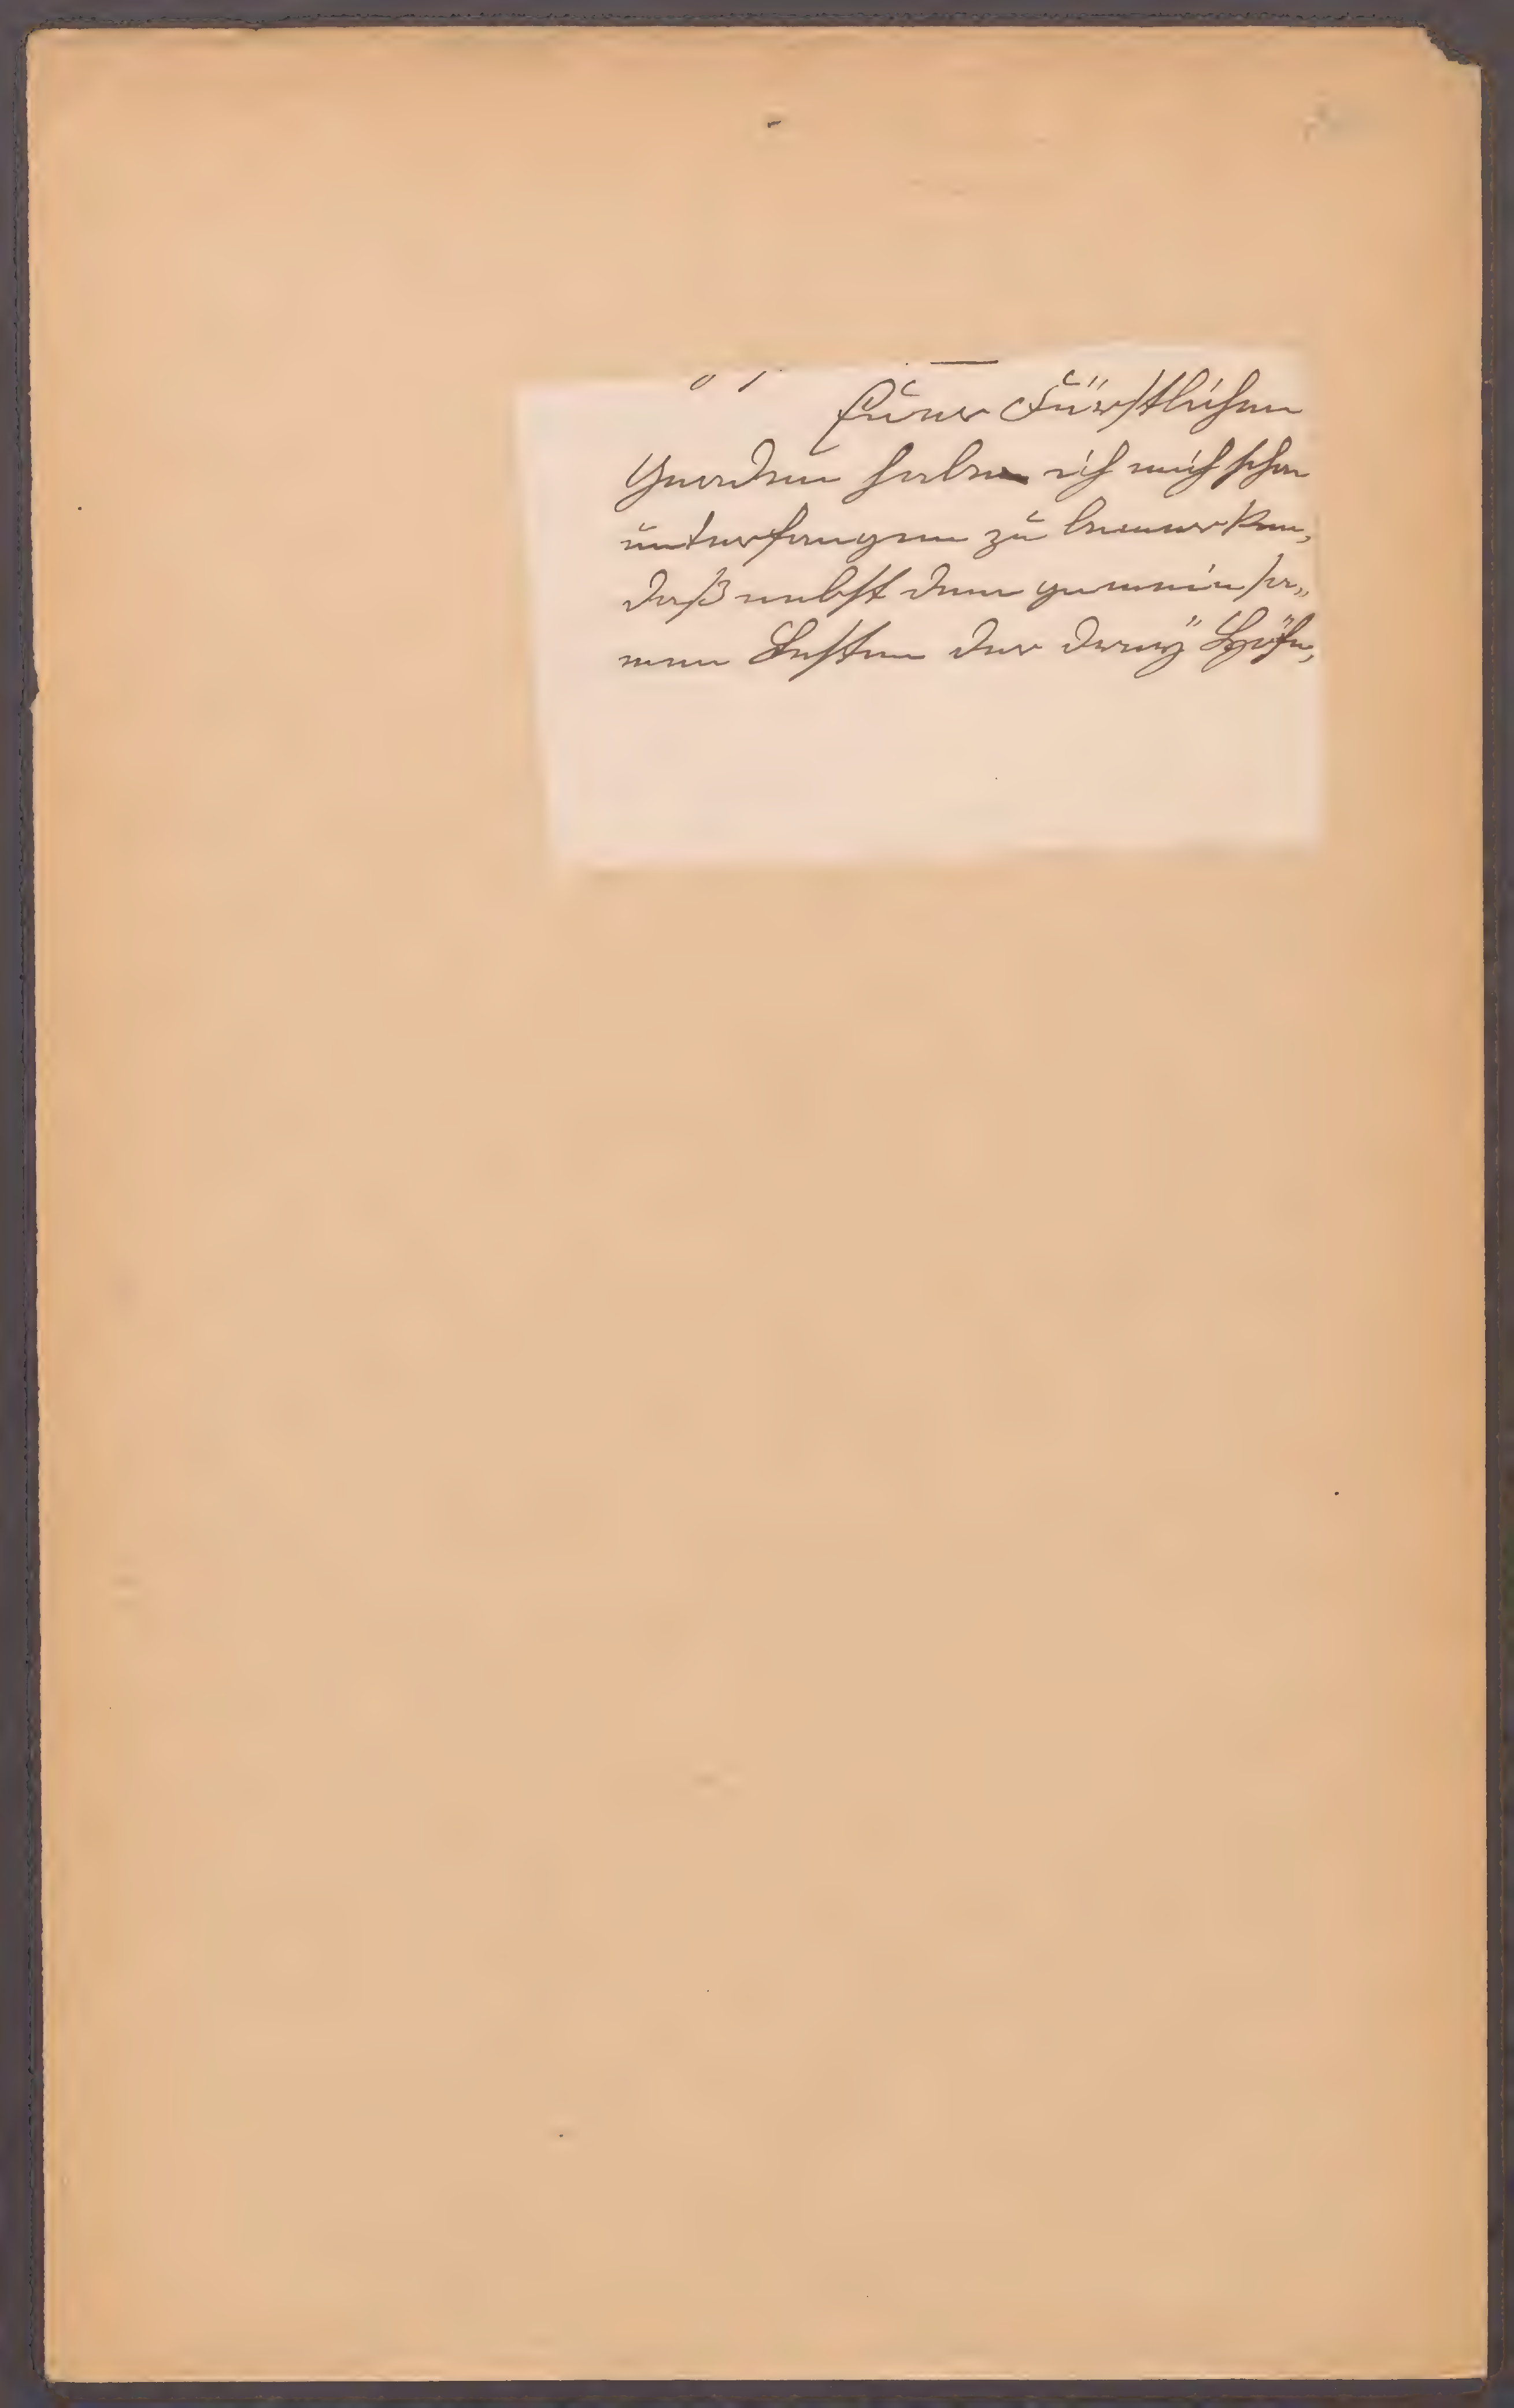 Eurer Fürstlichen
Gnaden habe ich mich schon
unterfangen zu bemerken,
daß nebst dem gemeinsa„
men Besten der dreÿ Höfe,